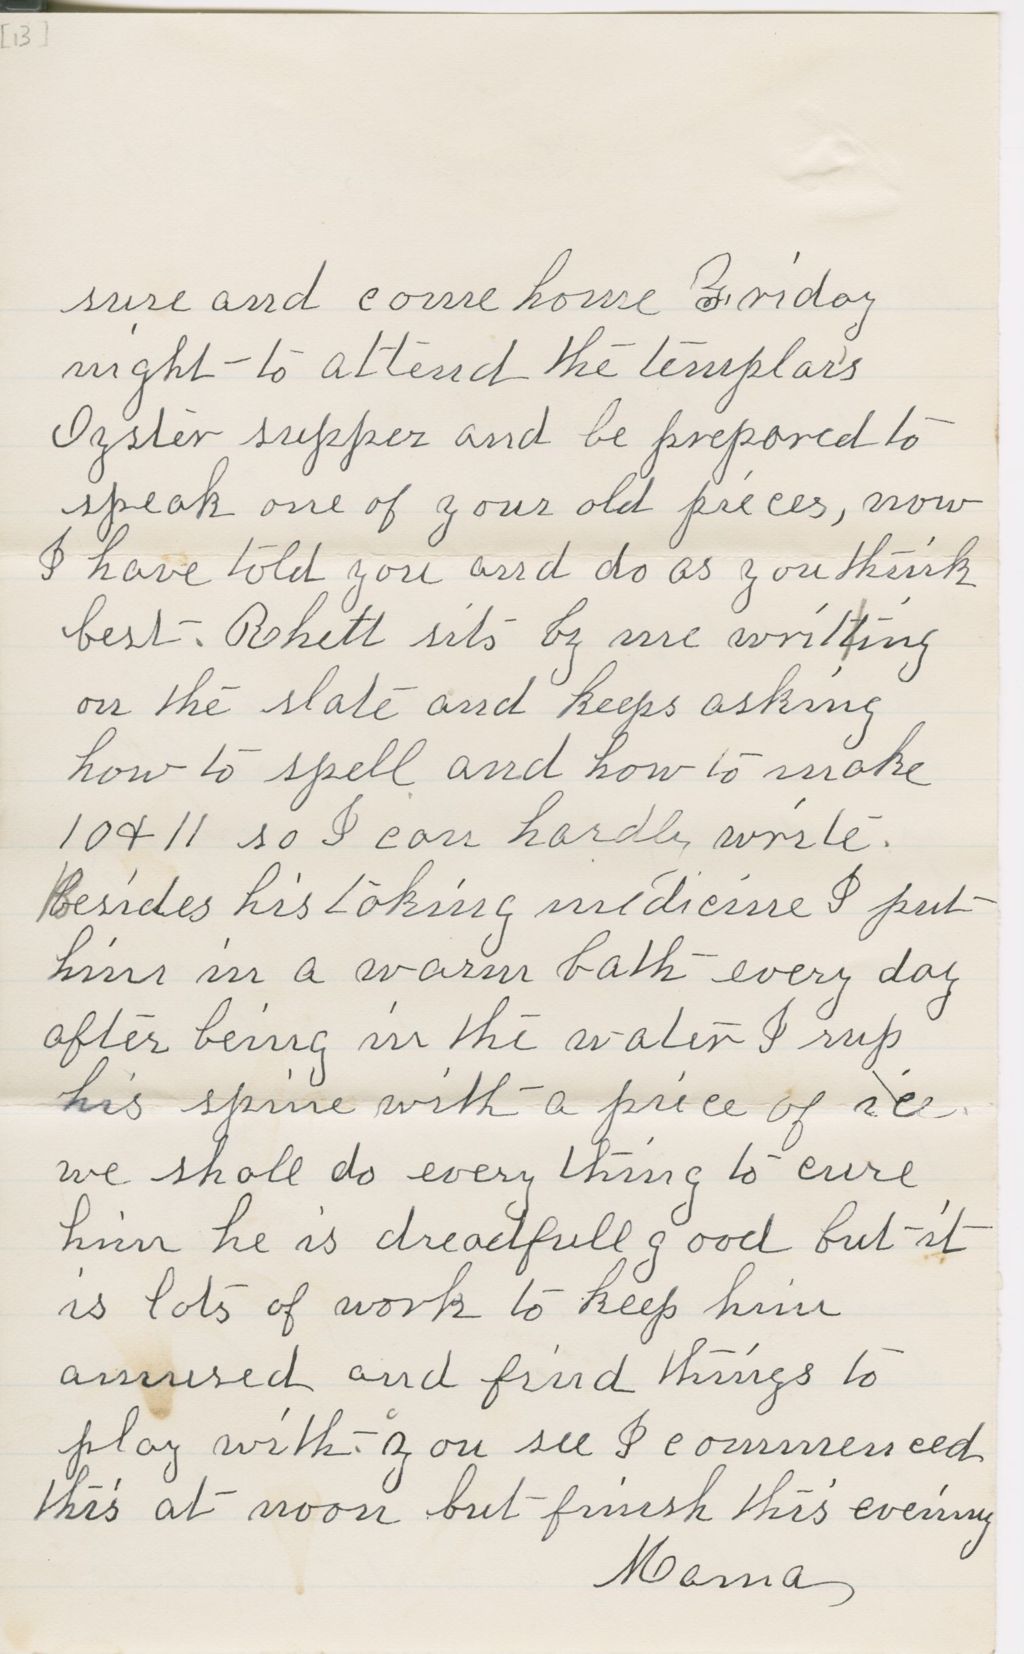 [13]
sure and come home Friday
night - to attend the templars
Oyster supper and be prepared to
speak one of your old pieces, now
I have told you and do as you think
best. Rhett sits by me writting
on the slate and keeps asking
how to spell and how to make
10 & 11 so I can hardly write.
Besides his taking medicine I put
him in a warm bath every day
after being in the water I rup
his spine with a piece of ice.
we shall do every thing to cure
him he is dreadfull good but it
is lots of work to keep him
amused and find things to
play with. you see I commenced
this at noon but finish this evening
Mama